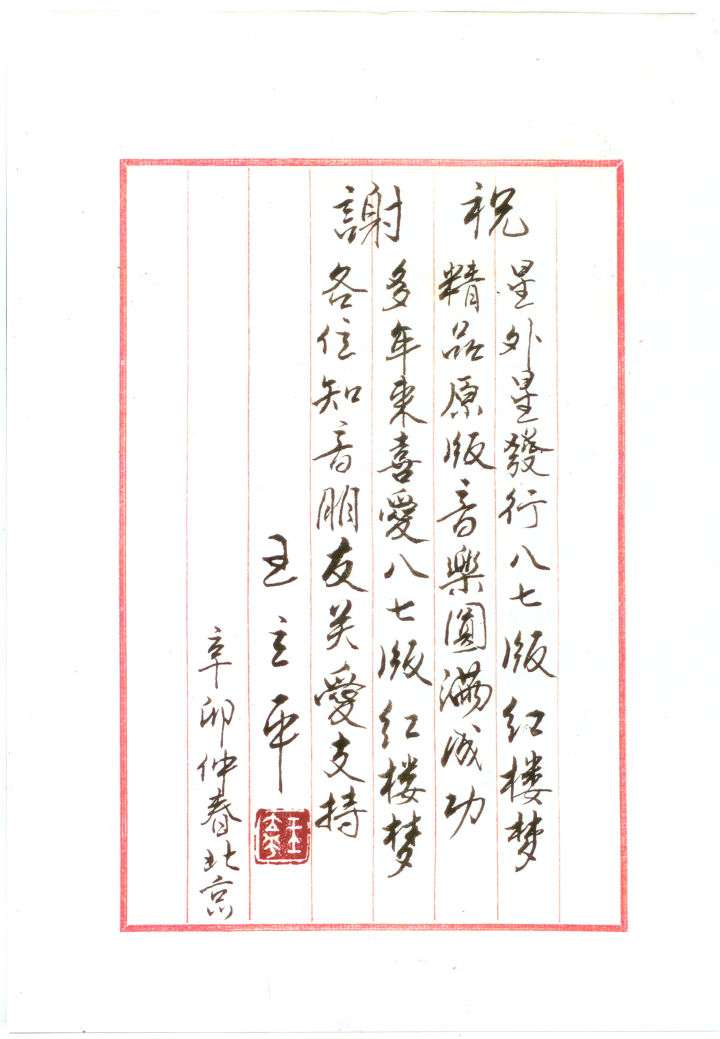 祝
星外星發行八七版红楼梦
精品原版音樂圓滿成功
謝
多年来喜愛八七版红楼梦
各位知音朋友关愛支持
王立平
辛卯仲春北京